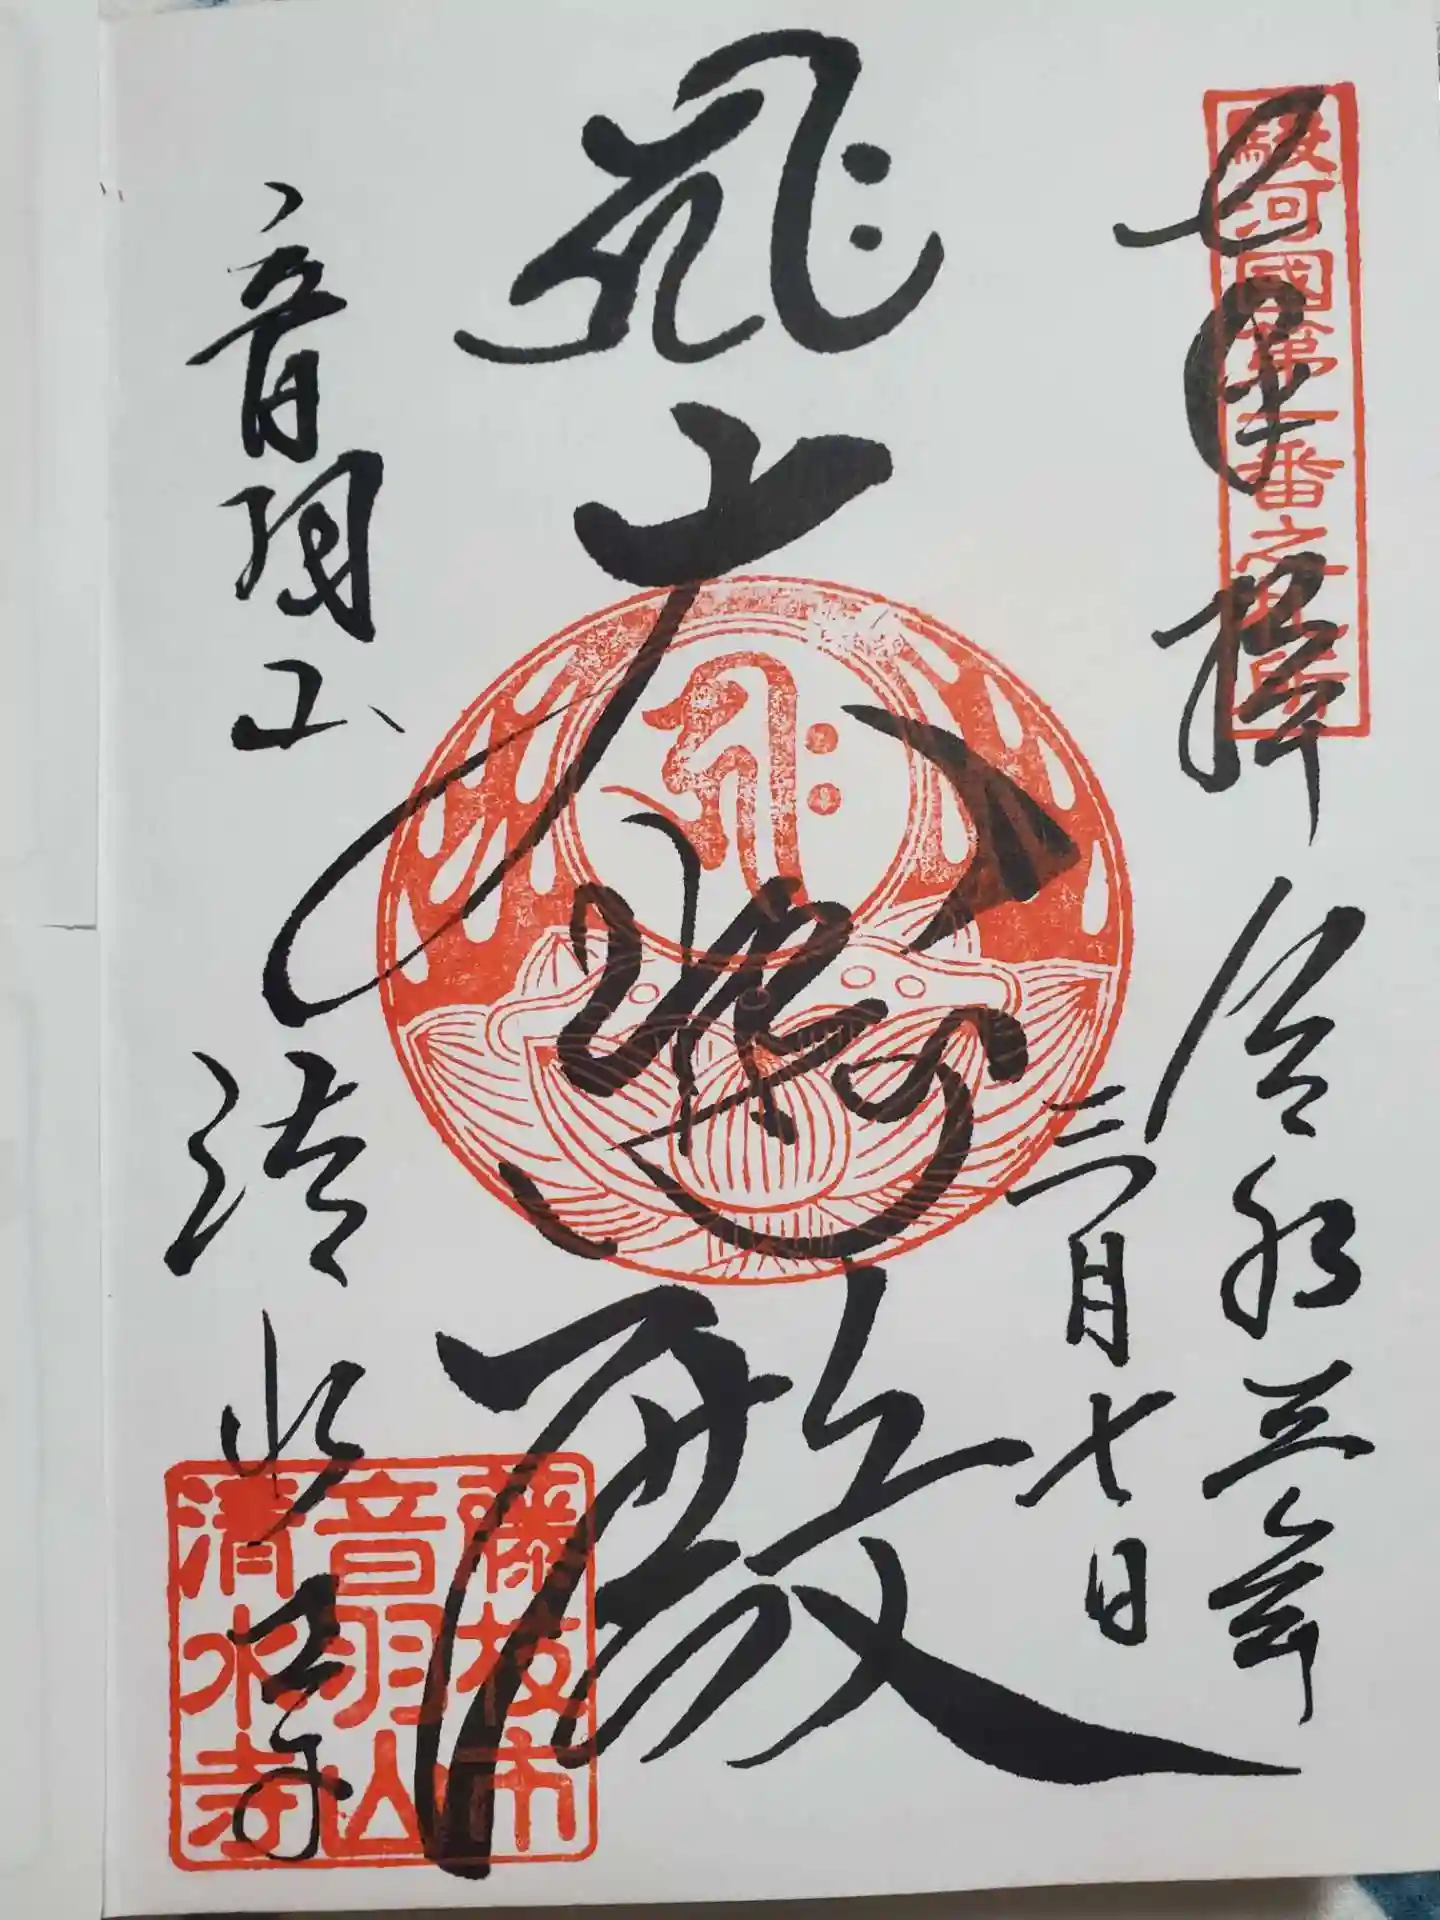 駿河國第一番之札所
奉拝
令和五年
三月七日
ह्रीः
大悲殿
音羽山
清水寺
藤枝市
音羽山
清水寺